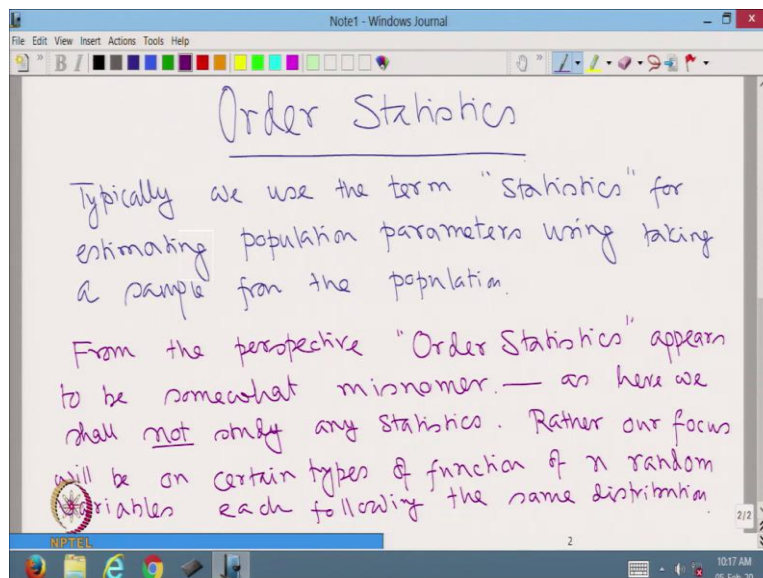 Note1 - Windows Journal
File Edit View Insert Actions Tools Help
Order Statistics
Typically we use the term "Statistics" for
estimating population parameters using taking
a sample from the population.
From the perspective "Order Statistics" appears
to be somewhat misnomer. — as here we
shall not study any statistics. Rather our focus
will be on certain types of function of n random
variables each following the same distribution
NPTEL
2
2/2
10:17 AM
05-Feb-20